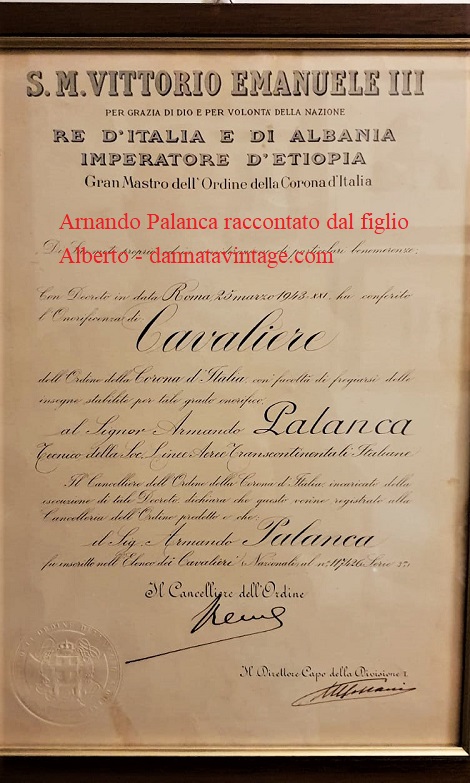 S. M. VITTORIO EMANUELE III
PER GRAZIA DI DIO E PER VOLONTÀ DELLA NAZIONE
RE D'ITALIA E DI ALBANIA
IMPERATORE D'ETIOPIA
Gran Mastro dell'Ordine della Corona d'Italia
Arnando Palanca raccontato dal figlio
Di Suo moto proprio ed in considerazione di particolari benemerenze;
Alberto - dannatavintage.com
Con Decreto in data Roma, 25 marzo 1943-XXI, ha conferito
l'Onorificenza di
Cavaliere
dell'Ordine della Corona d'Italia, con facoltà di fregiarsi delle
insegne stabilite per tale grado onorifico,
al Signor Armando Palanca
Tecnico della Soc. Linee Aeree Transcontinentali Italiane
Il Cancelliere dell'Ordine della Corona d'Italia, incaricato della
esecuzione di tale Decreto, dichiara che questo venne registrato alla
Cancelleria dell'Ordine predetto e che
il Sig. Armando Palanca
fu inscritto nell'Elenco dei Cavalieri (Nazionali) al n° 117426 Serie
Il Cancelliere dell'Ordine
Il Direttore Capo della Divisione